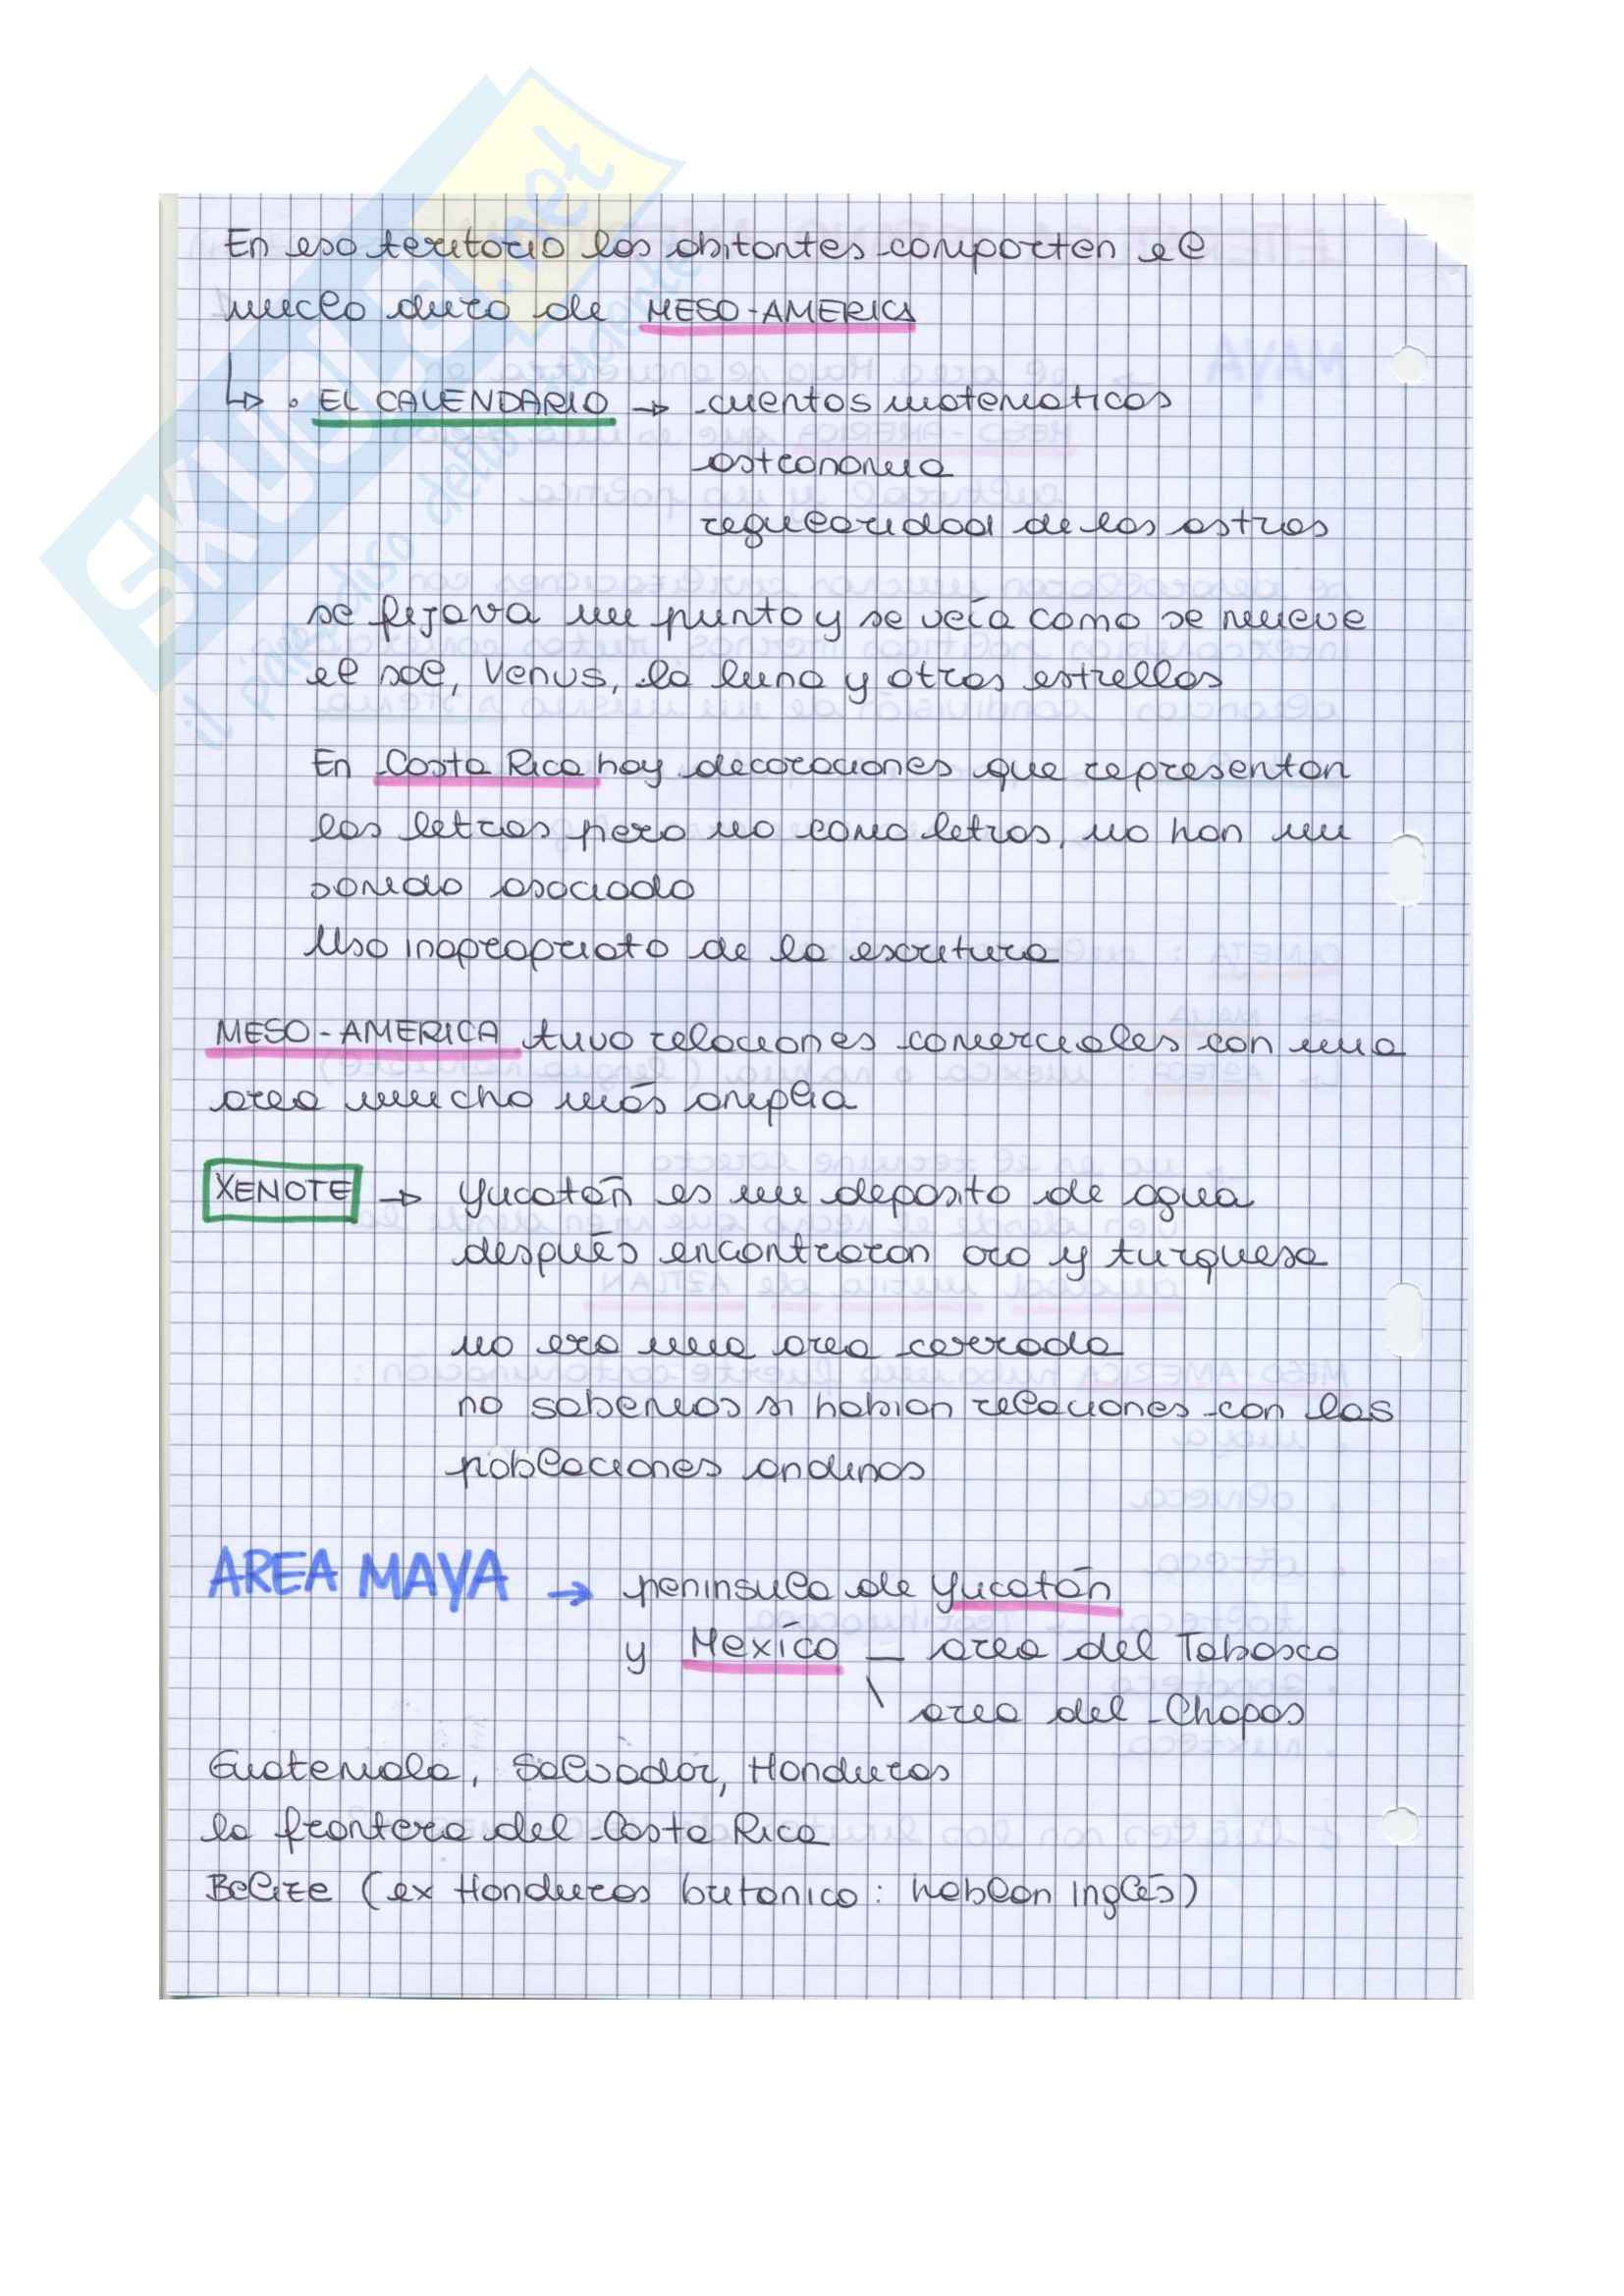 En eso territorio los abitantes comparten el
nucleo duro de MESO-AMERICA
↳ • EL CALENDARIO → cuentos matematicos
astronomia
regularidad de los astros
se fijava un punto y se veía como se mueve
el sol, Venus, la luna y otras estrellas
En Costa Rica hay decoraciones que representan
las letras pero no como letras, no han un
sonido asociado
Uso inapropriato de la escritura
MESO-AMERICA tuvo relaciones comerciales con una
area mucho más amplia
XENOTE → Yucatán es un deposito de agua
después encontraron oro y turquesa
no era una area cerrada
no sabemos si habian relaciones con las
poblaciones andinas
AREA MAYA → peninsula de Yucatán
y Mexíco — area del Tabasco
\ area del Chapas
Guatemala, Salvador, Honduras
la frontera del Costa Rica
Belize (ex Honduras britanico: hablan inglés)
SKUOLA.net
il paradiso dello studente